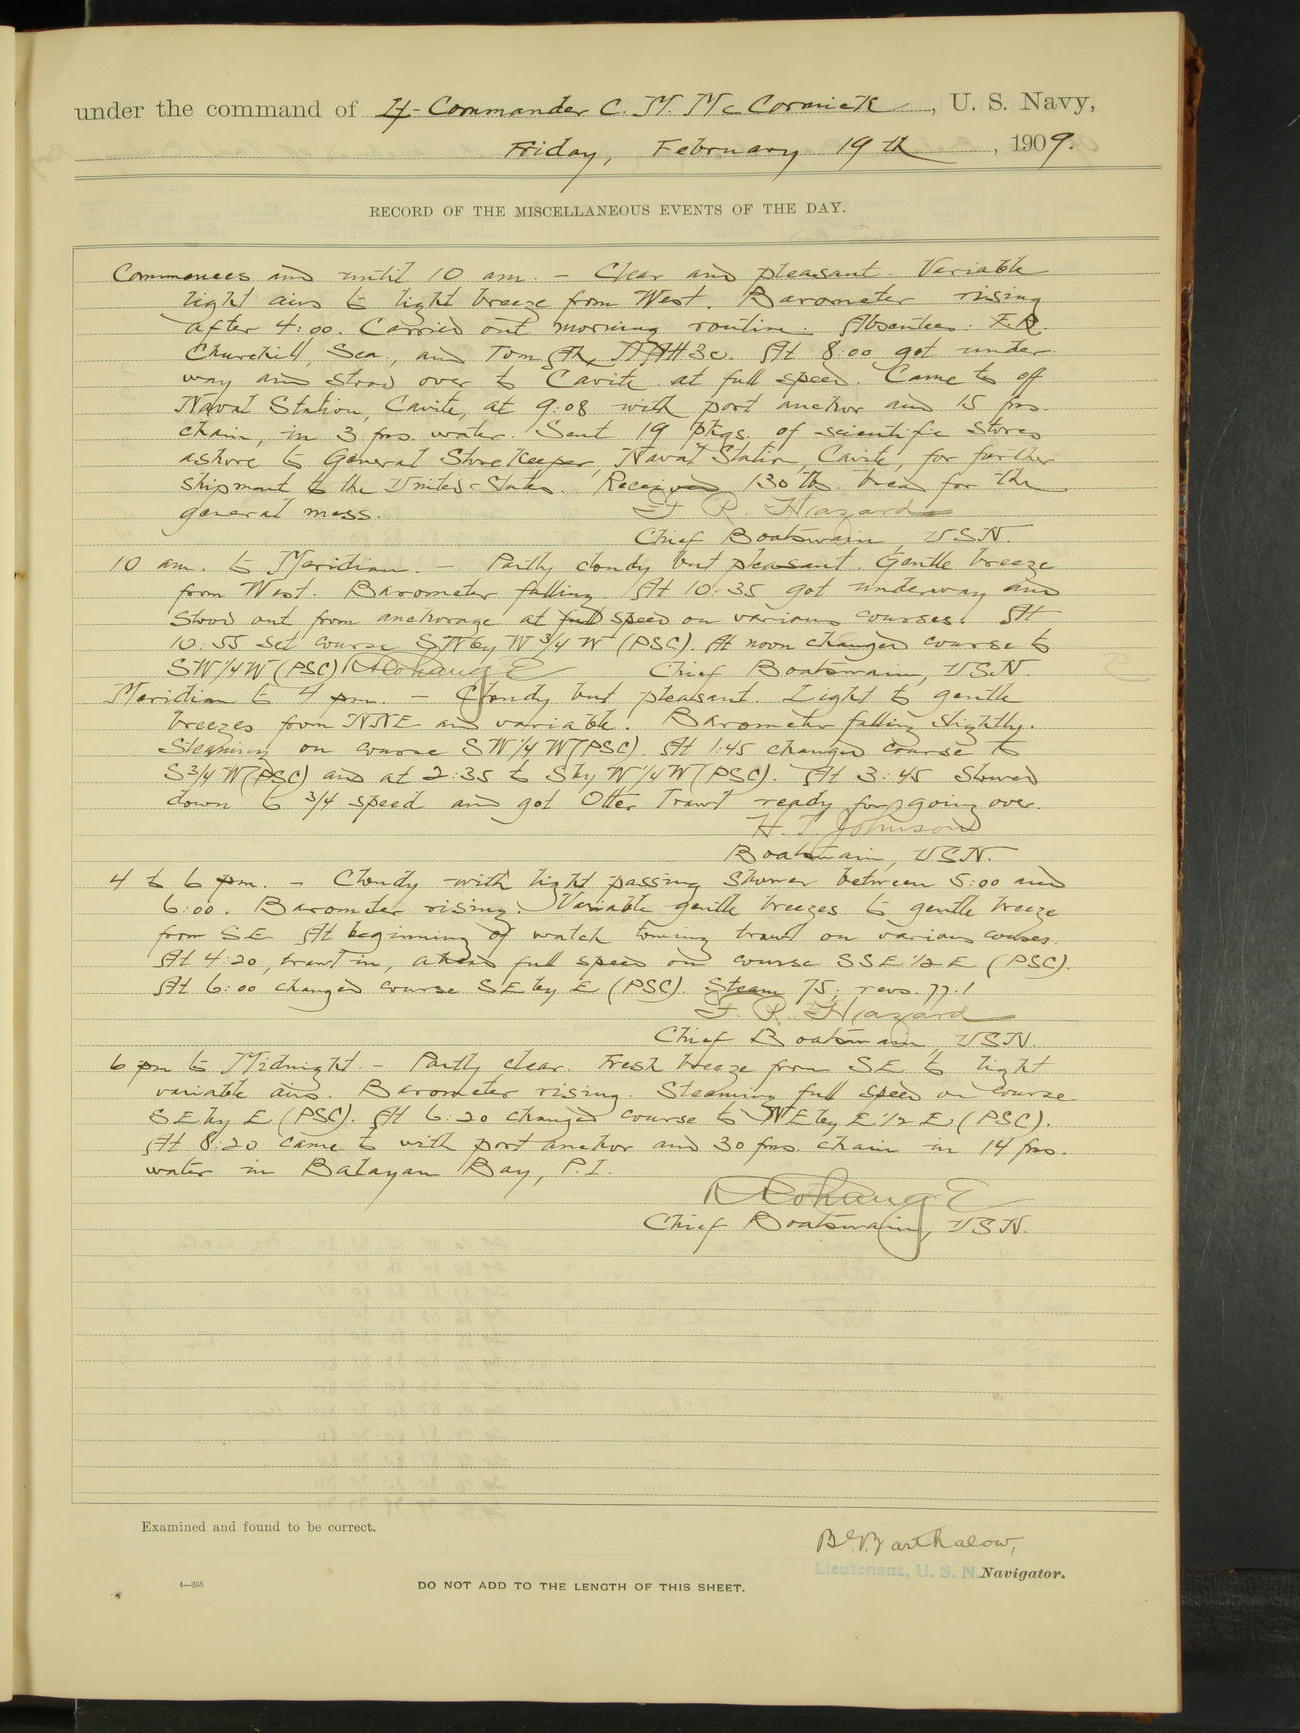 under the command of Lt-Commander C. M. McCormick, U. S. Navy,
Friday, February 19th, 1909.
RECORD OF THE MISCELLANEOUS EVENTS OF THE DAY.
Commences and until 10 am. - Clear and pleasant. Variable
light airs to light breeze from West. Barometer rising
after 4:00. Carried out morning routine. Absentees: F.R.
Churchill, Sea., and Tom Ah M Att3c. At 8:00 got under
way and stood over to Cavite at full speed. Came to off
Naval Station, Cavite, at 9:08 with port anchor and 15 fms.
chain, in 3 fms. water. Sent 19 pkgs. of scientific stores
ashore to General Store Keeper, Naval Station, Cavite, for further
shipment to the United States. Received 130 lbs. bread for the
general mess. F. R. Hazard
Chief Boatswain, USN.
10 am. to Meridian. - Partly cloudy but pleasant. Gentle breeze
from West. Barometer falling. At 10:35 got underway and
stood out from anchorage at full speed on various courses. At
10:55 set course SW by W 3/4 W (PSC). At noon changed course to
SW 1/4 W (PSC) Chief Boatswain, USN.
Meridian to 4 pm. - Cloudy but pleasant. Light to gentle
breezes from NNE and variable. Barometer falling slightly.
Steaming on course SW 1/4 W (PSC). At 1:45 changed course to
S 3/4 W (PSC) and at 2:35 to S by W 1/4 W (PSC). At 3:45 slowed
down to 3/4 speed and got Otter Trawl ready for going over.
H. T. Johnson
Boatswain, USN.
4 to 6 pm. - Cloudy with light passing shower between 5:00 and
6:00. Barometer rising. Variable gentle breezes to gentle breeze
from SE. At beginning of watch towing trawl on various courses.
At 4:20, trawl in, ahead full speed on course SSE 1/2 E (PSC).
At 6:00 changed course SE by E (PSC). Steam 75; revs. 77.1
F. R. Hazard
Chief Boatswain, USN.
6 pm to Midnight. - Partly clear. Fresh breeze from SE to light
variable airs. Barometer rising. Steaming full speed on course
SE by E (PSC). At 6:20 changed course to NE by E 1/2 E (PSC).
At 8:20 came to with port anchor and 30 fms. chain in 14 fms.
water in Balayan Bay, P.I.
Chief Boatswain, USN.
Examined and found to be correct.
Barthalow,
Lieutenant, U. S. N. Navigator.
4—265
DO NOT ADD TO THE LENGTH OF THIS SHEET.